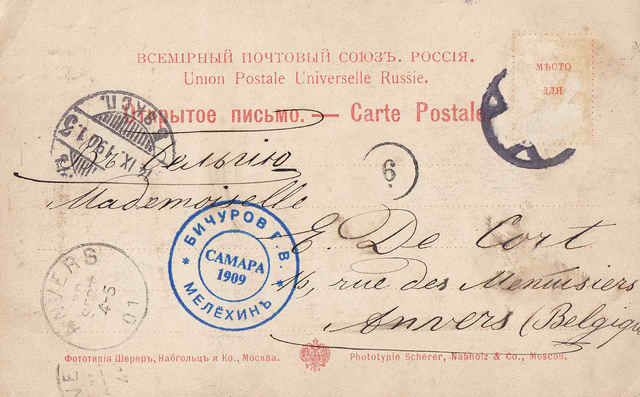 ВСЕМІРНЫЙ ПОЧТОВЫЙ СОЮЗЪ. РОССІЯ.
Union Postale Universelle Russie.
МѢСТО
ДЛЯ
Открытое письмо. — Carte Postale
Въ Бельгію
6
Mademoiselle
E. De Cort
16, rue des Menuisiers
Anvers (Belgique
БИЧУРОВ Г. В.
САМАРА
1909
МЕЛЁХИНЪ
ANVERS
4-5
01
Фототипія Шереръ, Набгольцъ и Ко., Москва.
Phototypie Scherer, Nabholz & Co., Moscou.